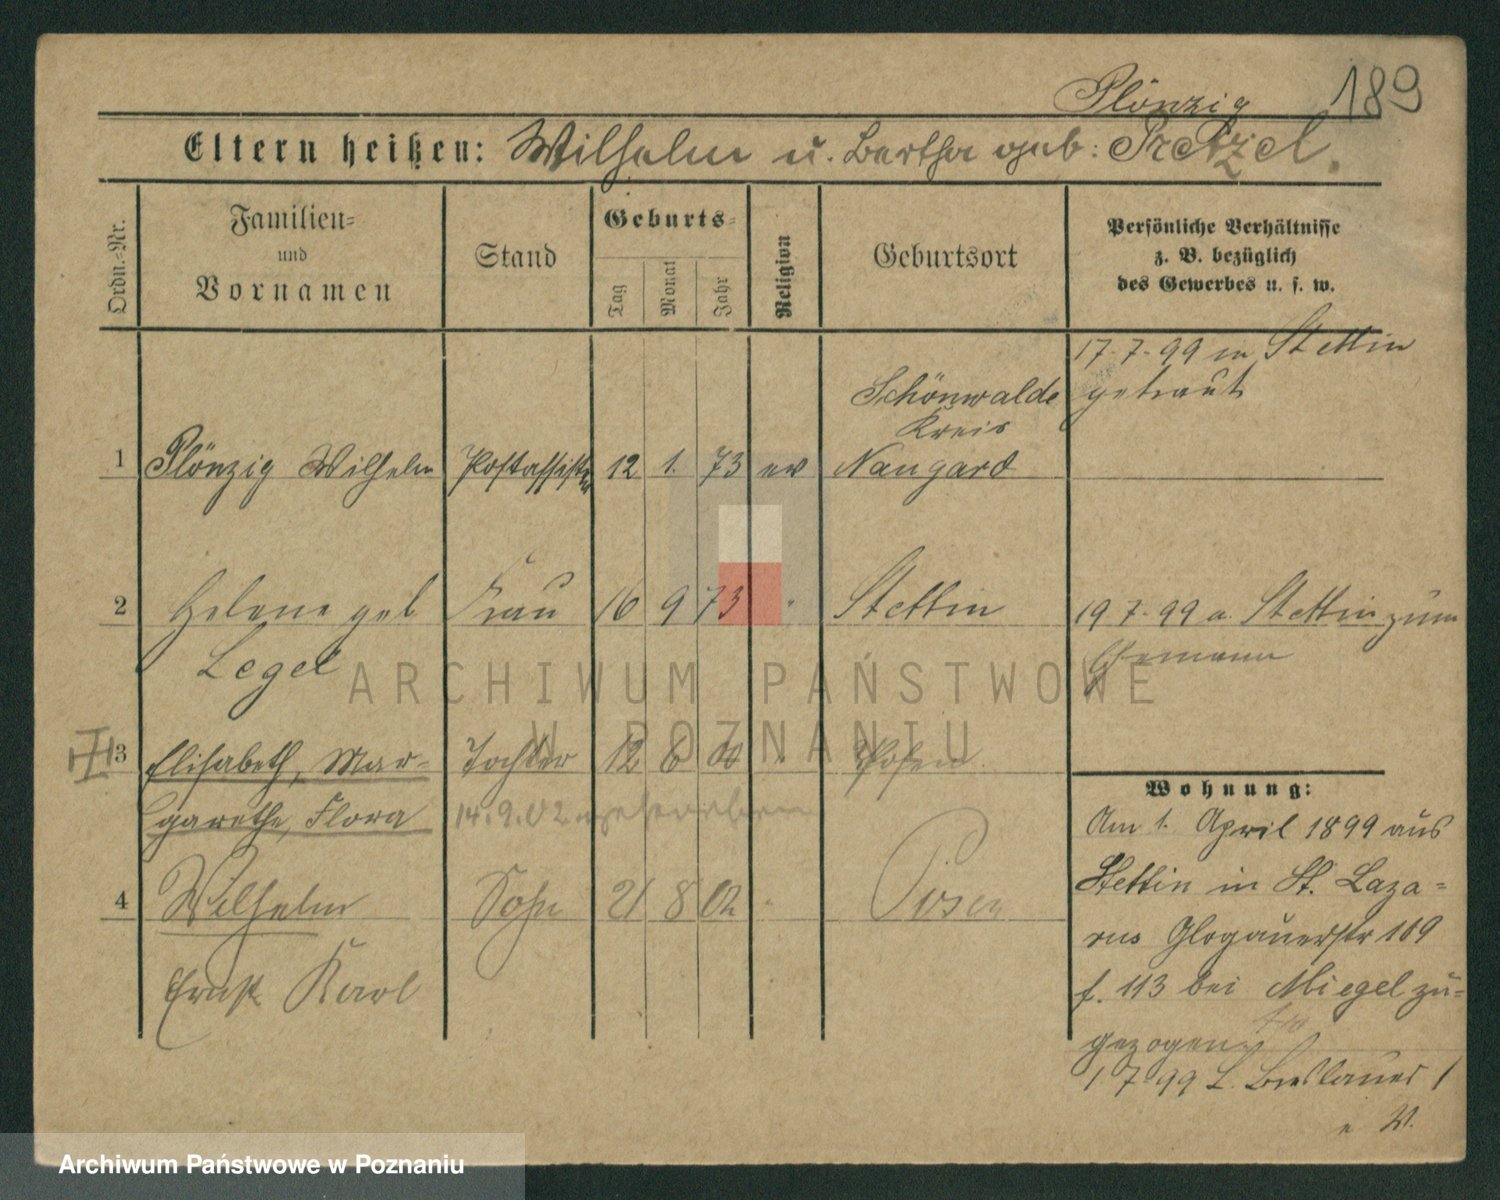 Plönzig 189
Eltern heißen: Wilhelm u. Bertha geb: Pretzel.
Ordn.-Nr.
Familien-
und
Vornamen
Stand
Geburts-
Tag
Monat
Jahr
Religion
Geburtsort
Persönliche Verhältnisse
z. B. bezüglich
des Gewerbes u. s. w.
17.7.99 in Stettin
getraut
Schönwalde
Kreis
1 Plönzig Wilhelm Postassistent 12 1. 73 ev Naugard
2 Helene geb Frau 16 9 73 " Stettin 19.7.99 a. Stettin zum
Legel Ehemann
III 3 Elisabeth, Mar- Tochter 12 6 00 " Posen
garethe, Flora 14.9.02
4 Wilhelm Sohn 21 8 02 " Posen
Ernst Karl
Wohnung:
Am 1. April 1899 aus
Stettin in St. Laza-
rus Glogauerstr 109
f. 113 bei Miegel zu-
gezogen
1 7 99 L. Breslauer 1
n W.
ARCHIWUM PAŃSTWOWE
W POZNANIU
Archiwum Państwowe w Poznaniu